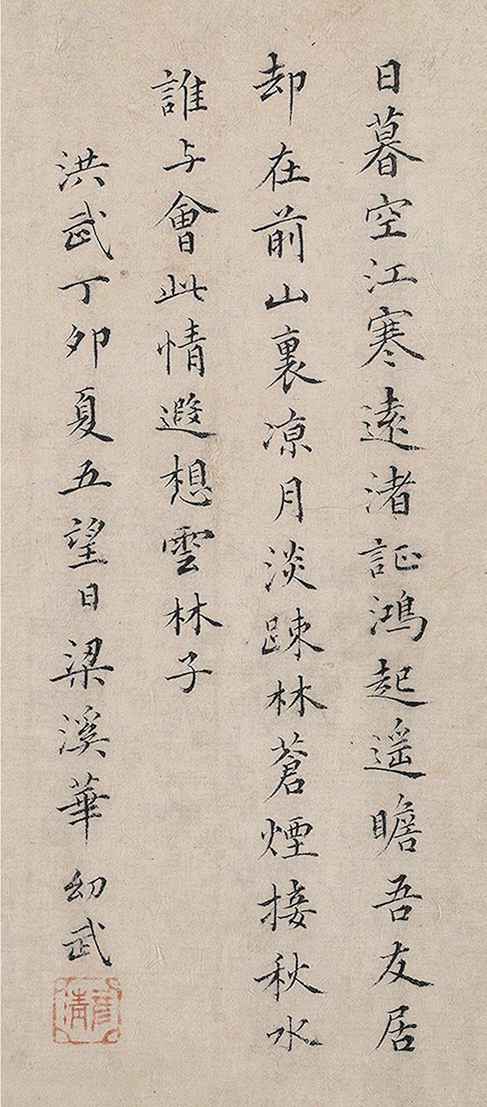 日暮空江寒遠渚証鴻起遥瞻吾友居
却在前山裏凉月淡踈林蒼煙接秋水
誰与會此情遐想雲林子
洪武丁卯夏五望日梁溪華幼武
彦清